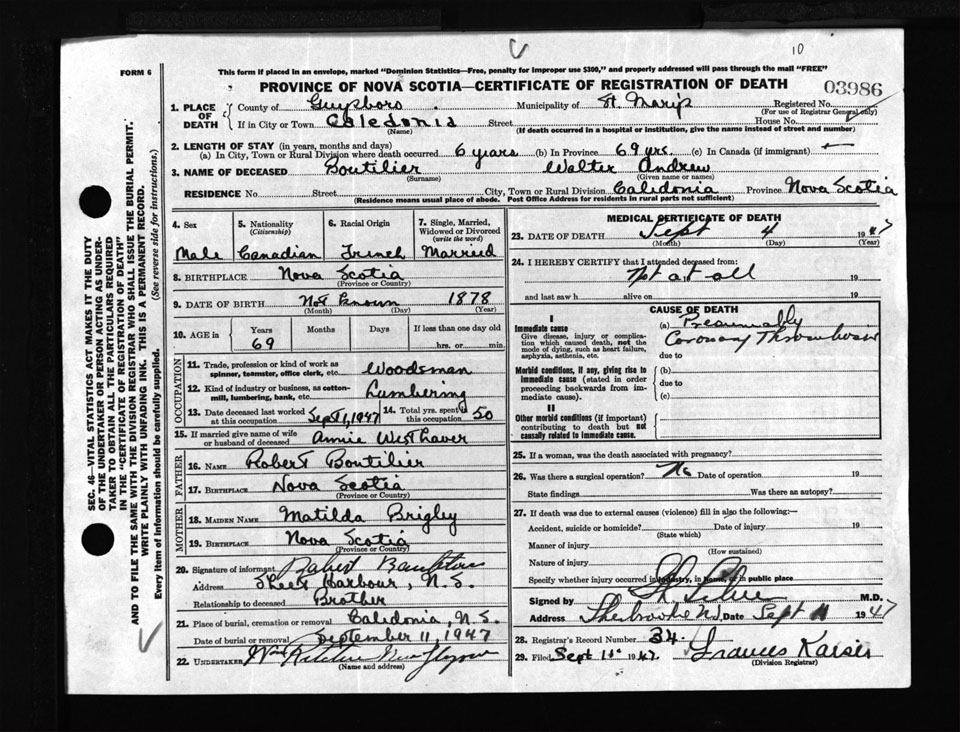 10
FORM 6
This form if placed in an envelope, marked "Dominion Statistics—Free, penalty for improper use $300," and properly addressed will pass through the mail "FREE"
PROVINCE OF NOVA SCOTIA—CERTIFICATE OF REGISTRATION OF DEATH
03986
1. PLACE OF DEATH
County of Guysboro Municipality of St. Marys Registered No.
(For use of Registrar General only)
If in City or Town Caledonia Street House No.
(Name) (If death occurred in a hospital or institution, give the name instead of street and number)
2. LENGTH OF STAY (in years, months and days)
(a) In City, Town or Rural Division where death occurred 6 years (b) In Province 69 yrs. (c) In Canada (if immigrant)
3. NAME OF DECEASED Boutilier Walter Andrew
(Surname) (Given name or names)
RESIDENCE No. Street City, Town or Rural Division Caledonia Province Nova Scotia
(Residence means usual place of abode. Post Office Address for residents in rural parts not sufficient)
4. Sex 5. Nationality (Citizenship) 6. Racial Origin 7. Single, Married, Widowed or Divorced (write the word)
Male Canadian French Married
8. BIRTHPLACE Nova Scotia
(Province or Country)
9. DATE OF BIRTH Not known 1878
(Month) (Day) (Year)
10. AGE in Years Months Days If less than one day old
69 hrs. or min.
OCCUPATION
11. Trade, profession or kind of work as spinner, teamster, office clerk, etc. Woodsman
12. Kind of industry or business, as cotton-mill, lumbering, bank, etc. Lumbering
13. Date deceased last worked at this occupation Sept 1, 1947 14. Total yrs. spent in this occupation 50
15. If married give name of wife or husband of deceased Annie Westhaver
FATHER
16. NAME Robert Boutilier
17. BIRTHPLACE Nova Scotia
(Province or Country)
MOTHER
18. MAIDEN NAME Matilda Brigley
19. BIRTHPLACE Nova Scotia
(Province or Country)
20. Signature of informant Robert
Address Sheet Harbour, N.S.
Relationship to deceased Brother
21. Place of burial, cremation or removal Caledonia, N.S.
Date of burial or removal September 11, 1947
22. UNDERTAKER Wm New Glasgow
(Name and address)
MEDICAL CERTIFICATE OF DEATH
23. DATE OF DEATH Sept 4 1947
(Month) (Day) (Year)
24. I HEREBY CERTIFY that I attended deceased from:
Not at all 19
and last saw h alive on 19
CAUSE OF DEATH
I
Immediate cause (a) Presumably
Give disease, injury or complication which caused death, not the mode of dying, such as heart failure, asphyxia, asthenia, etc.
Coronary Thrombosis
due to
Morbid conditions, if any, giving rise to immediate cause (stated in order proceeding backwards from immediate cause).
(b)
due to
(c)
II
Other morbid conditions (if important) contributing to death but not causally related to immediate cause.
25. If a woman, was the death associated with pregnancy?
26. Was there a surgical operation? No Date of operation 19
State findings Was there an autopsy?
27. If death was due to external causes (violence) fill in also the following:—
Accident, suicide or homicide? Date of injury 19
(State which)
Manner of injury
(How sustained)
Nature of injury
Specify whether injury occurred in industry, in home, or in public place
Signed by M.D.
Address Sherbrooke NS Date Sept 11 1947
28. Registrar's Record Number 34.
29. Filed Sept 11 1947 Frances Kaiser
(Division Registrar)
SEC. 46—VITAL STATISTICS ACT MAKES IT THE DUTY
OF THE UNDERTAKER OR PERSON ACTING AS UNDER-
TAKER TO OBTAIN ALL THE PARTICULARS REQUIRED
IN THE "CERTIFICATE OF REGISTRATION OF DEATH"
AND TO FILE THE SAME WITH THE DIVISION REGISTRAR WHO SHALL ISSUE THE BURIAL PERMIT.
WRITE PLAINLY WITH UNFADING INK. THIS IS A PERMANENT RECORD.
Every item of information should be carefully supplied. (See reverse side for instructions.)